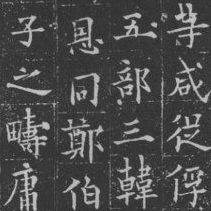 等咸從俘
五部三韓
恩同鄭伯
子之疇庸